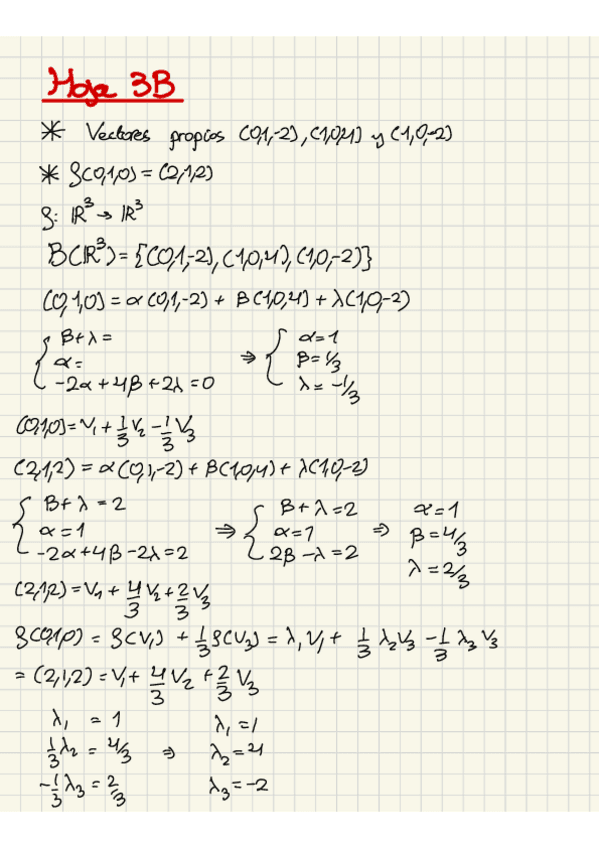 Hoja 3B
* Vectores propios (0,1,-2), (1,0,4) y (1,0,-2)
* f(0,1,0) = (2,1,2)
f: ℝ³ → ℝ³
B(ℝ³) = {(0,1,-2), (1,0,4), (1,0,-2)}
(0,1,0) = α(0,1,-2) + β(1,0,4) + λ(1,0,-2)
{ β+λ = ⇒ { α=1
α= β=1/3
-2α+4β+2λ=0 λ=-1/3
(0,1,0) = V₁ + 1/3 V₂ - 1/3 V₃
(2,1,2) = α(0,1,-2) + β(1,0,4) + λ(1,0,-2)
{ β+λ=2 ⇒ { β+λ=2 ⇒ α=1
α=1 α=1 β=4/3
-2α+4β-2λ=2 2β-λ=2 λ=2/3
(2,1,2) = V₁ + 4/3 V₂ + 2/3 V₃
f(0,1,0) = f(V₁) + 1/3 f(V₃) = λ₁V₁ + 1/3 λ₂V₃ - 1/3 λ₃V₃
= (2,1,2) = V₁ + 4/3 V₂ + 2/3 V₃
λ₁ = 1 λ₁=1
1/3 λ₂ = 4/3 ⇒ λ₂=4
-1/3 λ₃ = 2/3 λ₃=-2